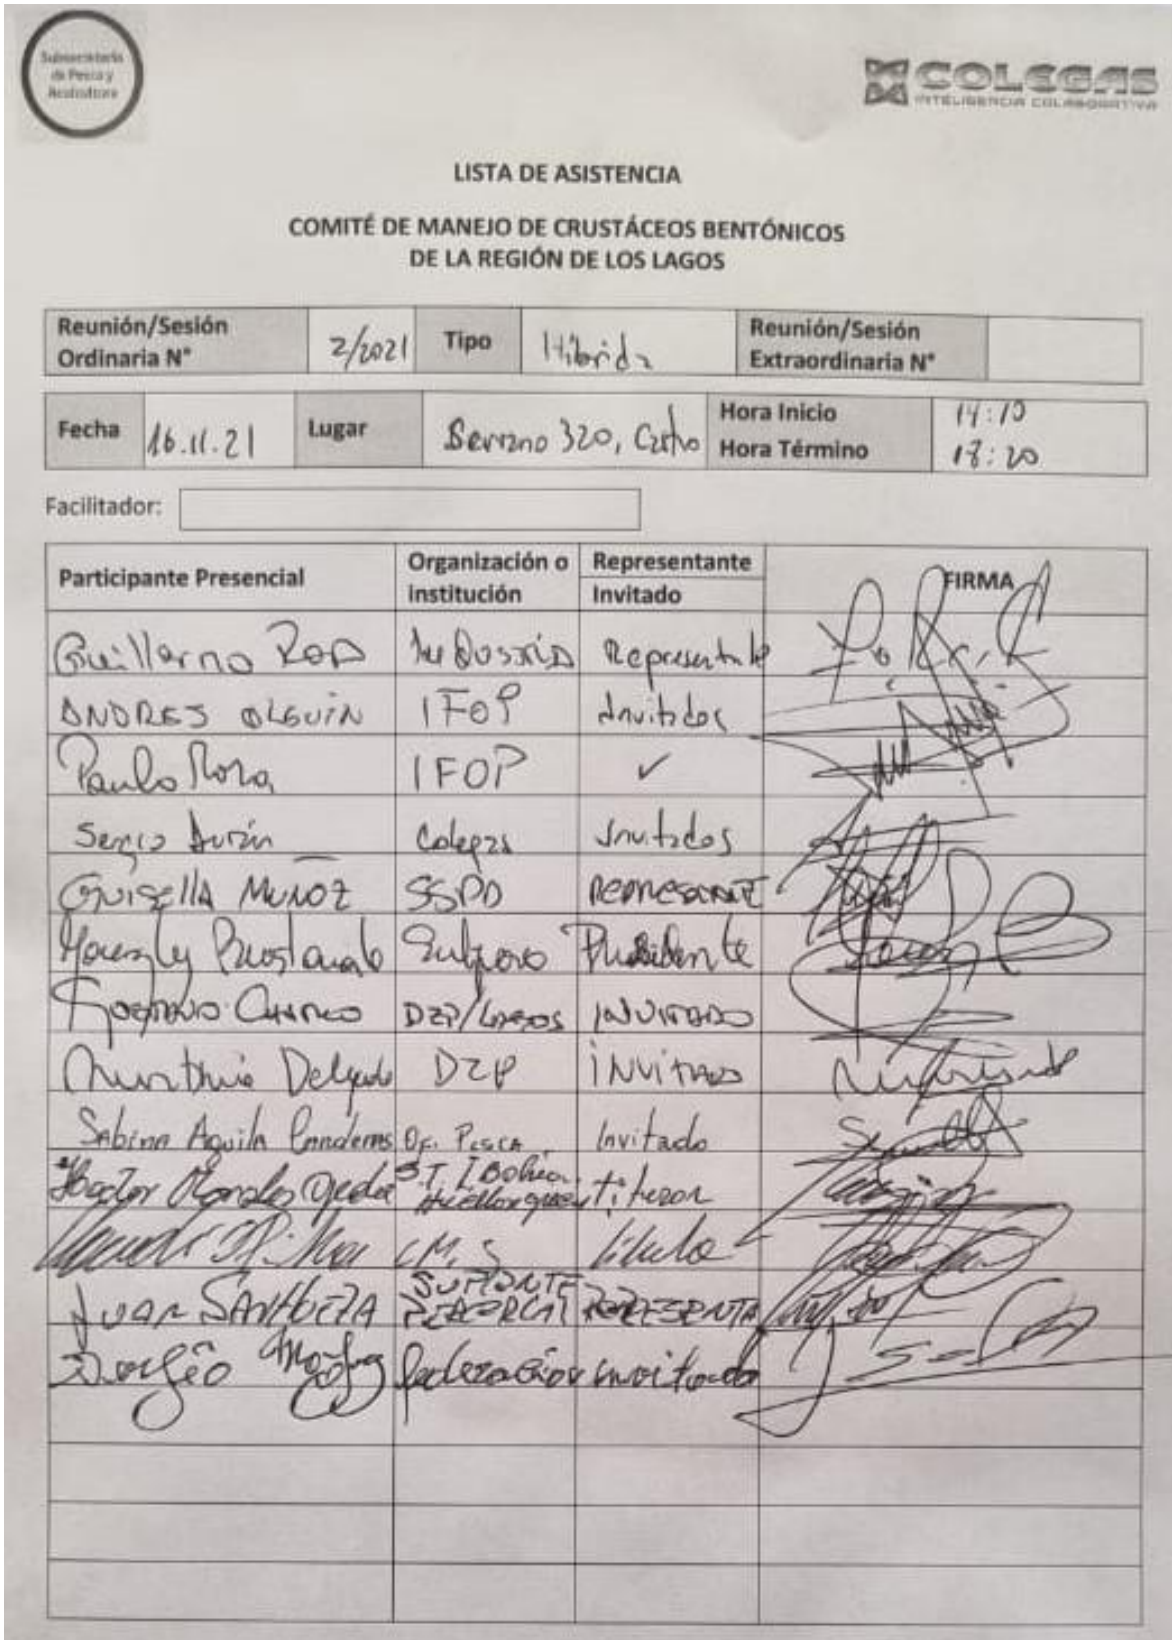 Subsecretaría
de Pesca y
Acuicultura
COLEGAS
INTELIGENCIA COLABORATIVA
LISTA DE ASISTENCIA
COMITÉ DE MANEJO DE CRUSTÁCEOS BENTÓNICOS
DE LA REGIÓN DE LOS LAGOS
Reunión/Sesión Ordinaria N° 2/2021 Tipo Híbrida Reunión/Sesión Extraordinaria N°
Fecha 16.11.21 Lugar Serrano 320, Castro Hora Inicio 14:10
Hora Término 18:20
Facilitador:
Participante Presencial Organización o institución Representante Invitado FIRMA
Guillermo Industria Representante
ANDRES OLGUIN IFOP Invitados
Paulo Mora IFOP ✓
Sergio Durán Colegas Invitados
GUISELLA MUÑOZ SSPA REPRESENTANTE
Presidente
DZP/LAGOS INVITADO
Delgado DZP INVITADO
Sabina Aguila Of. PESCA Invitado
Hector Morales Ojeda S.T.I. Bahia titular
titular
JUAN SANHUEZA SUPLENTE REPRESENTA
Sergio federación invitado